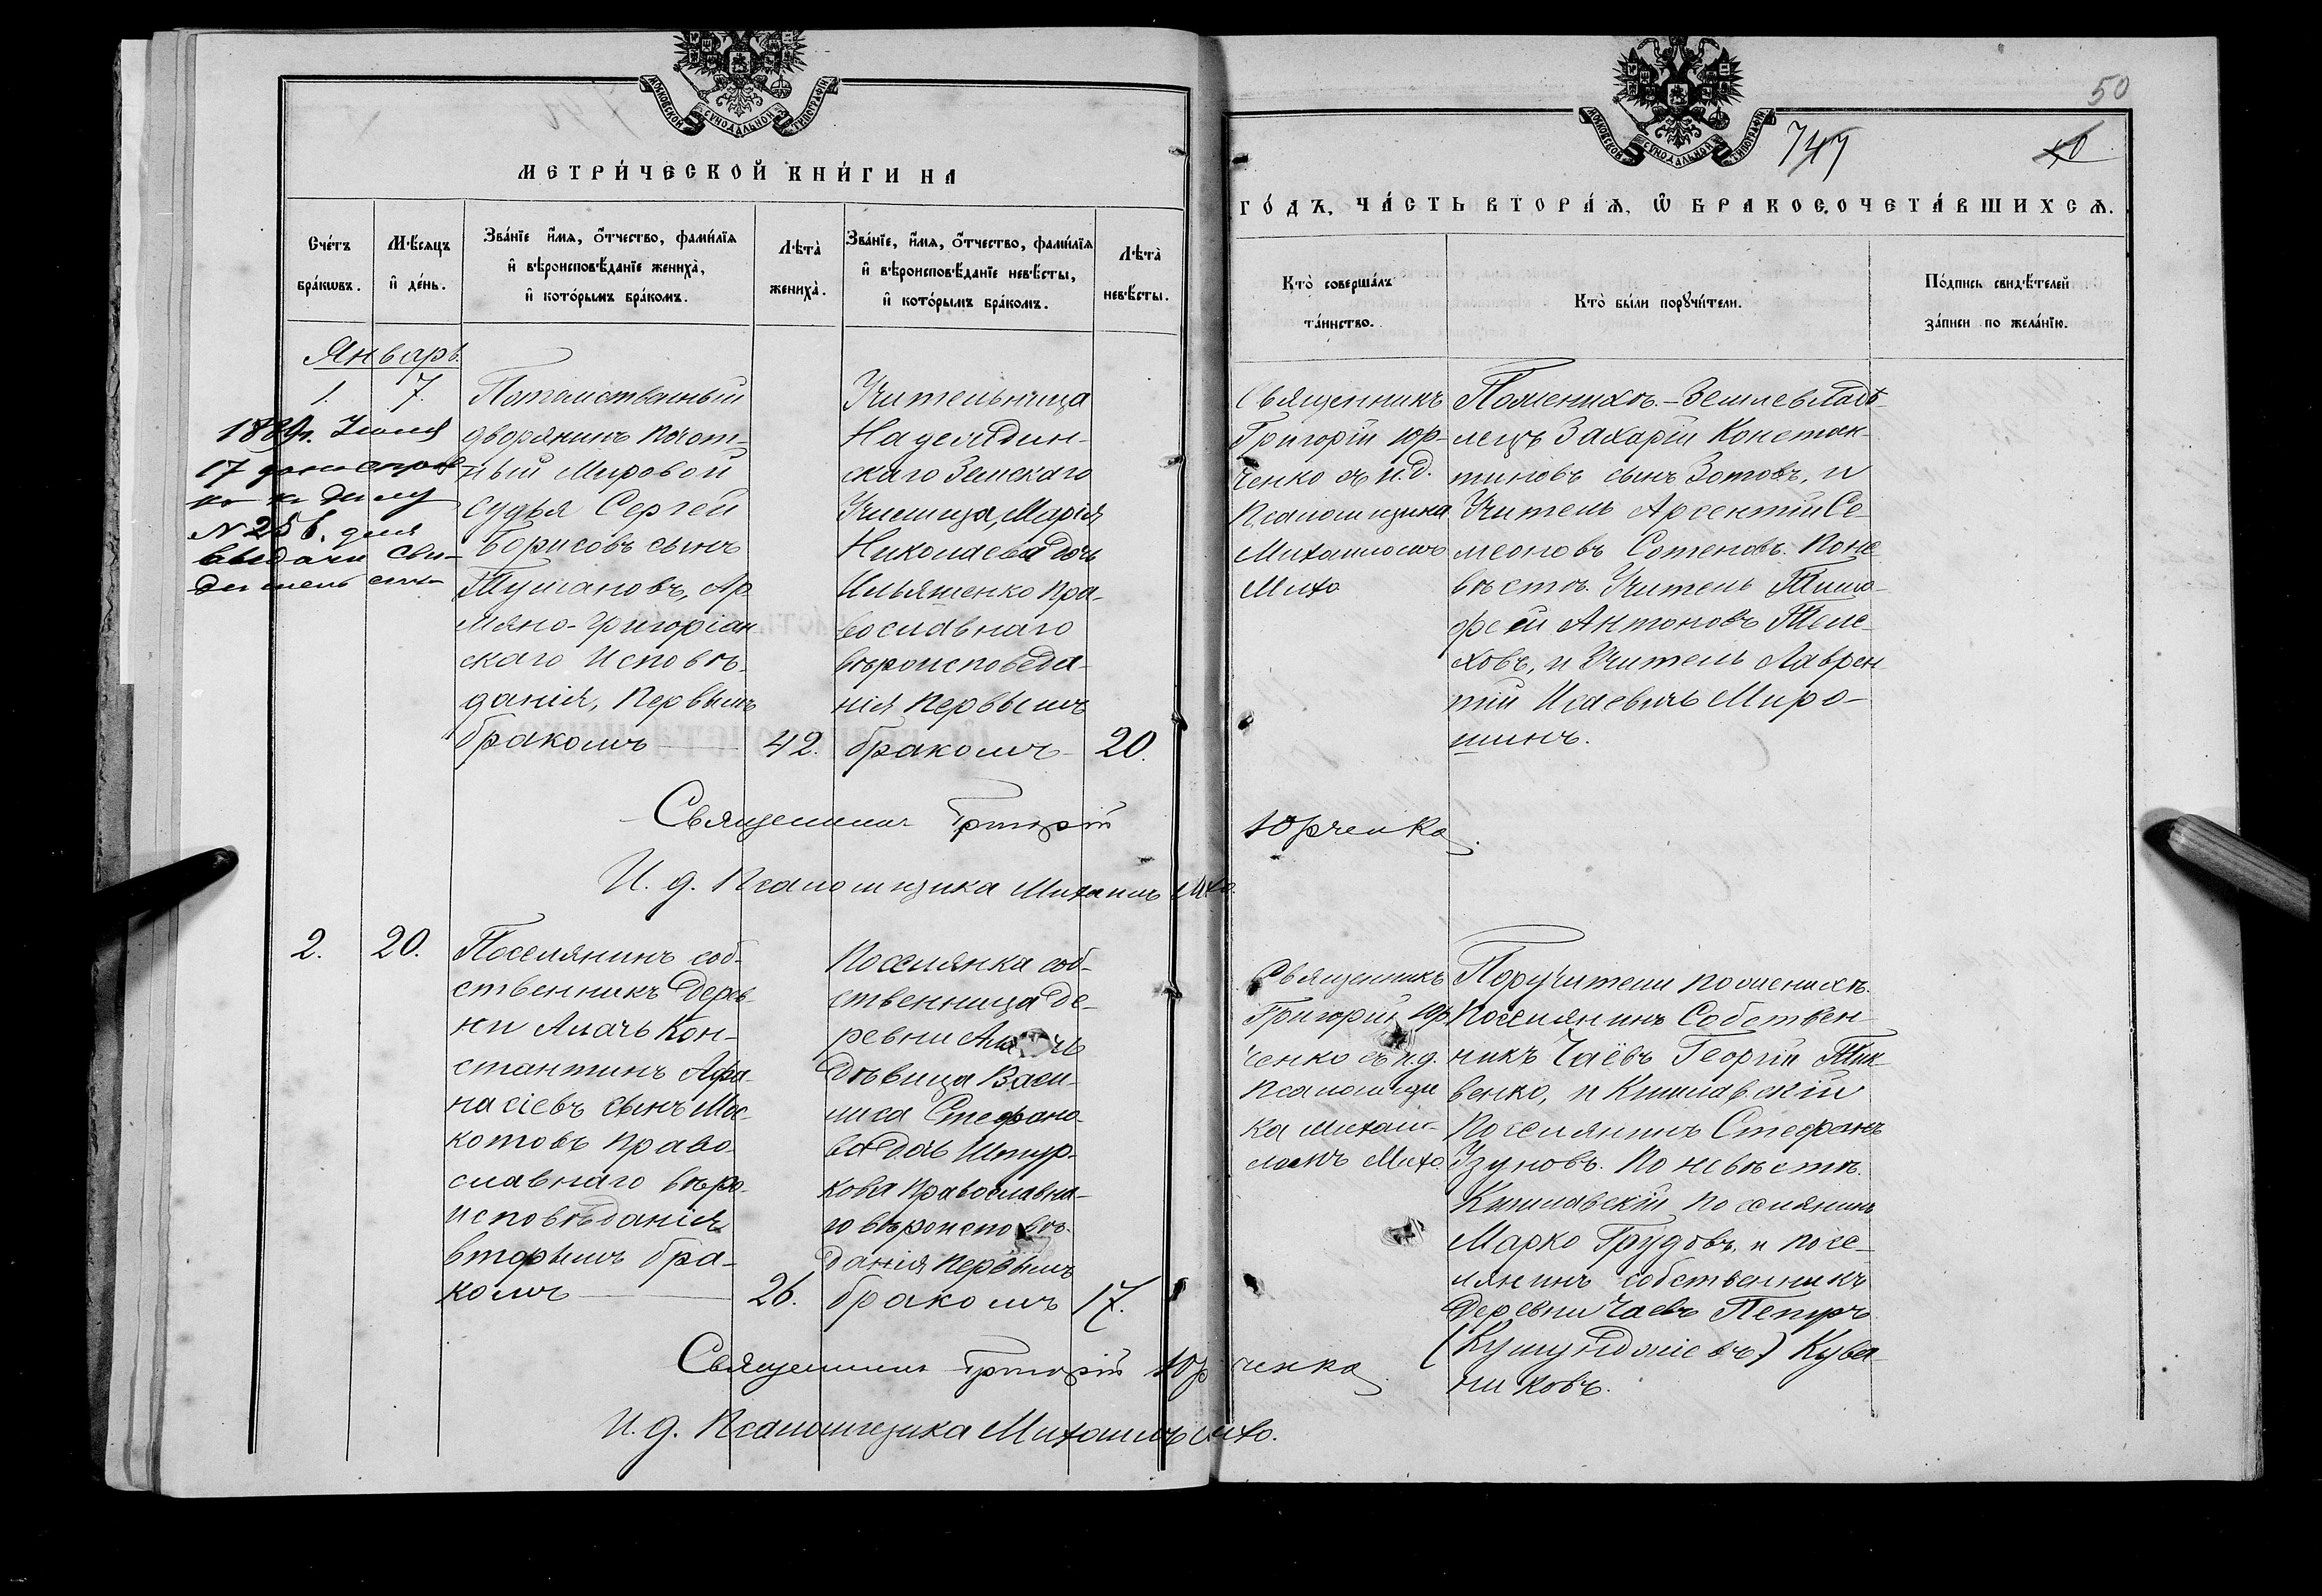 МОСКОВСКОЙ СУНОДАЛЬНОЙ ТИПОГРАФІИ
МЕТРИ́ЧЕСКОЙ КНИ́ГИ НА
Сче́тъ бра́кѡвъ.
Мѣ́сяцъ и҆ де́нь.
Зва́нїе и҆́мѧ, ѻ҆́тчество, фами́лїѧ
и҆ вѣроисповѣ́данїе жениха̀,
и҆ кото́рымъ бра́комъ.
Лѣта̀ жениха̀.
Зва́нїе, и҆́мѧ, ѻ҆́тчество, фами́лїѧ
и҆ вѣроисповѣ́данїе невѣ́сты,
и҆ кото́рымъ бра́комъ.
Лѣта̀ невѣ́сты.
Январь.
1. 7.
1889 г. Іюля
17 дня
къ дѣлу
N 256. для
выдачи сви-
дѣтель
Потомственный
дворянинъ Почот-
ный Мировой
Судья Сергѣй
Борисовъ сынъ
Тумановъ, Ар
мяно-Григоріан
скаго Исповѣ-
данія, Первымъ
бракомъ
42.
Учительница
скаго Земскаго
Училища, Марія
Николаева дочь
Ильяшенко Пра-
вославнаго
вѣроисповѣда-
нія Первымъ
бракомъ
20.
Священникъ Григорій
И. д. Псаломщика Михаилъ Михо.
2. 20.
Поселянинъ соб-
ственникъ Дерев-
ни Алачь Кон-
стантинъ Афа-
насіевъ сынъ Мос-
котовъ Право-
славнаго вѣро-
исповѣданія
вторымъ бра-
комъ
26.
Поселянка соб-
ственница Де-
ревни Алачь
Дѣвица Васи-
лиса Стефано-
ва дочь
кова Православна-
го вѣроисповѣ-
данія Первымъ
бракомъ
17.
Священникъ Григорій Юр
И. д. Псаломщика Михаилъ Михо.
50
МОСКОВСКОЙ СУНОДАЛЬНОЙ ТИПОГРАФІИ
747
ГО́ДЪ, ЧА́СТЬ ВТОРА́Ѧ, Ѽ БРАКОСОЧЕТА́ВШИХСѦ.
Кто̀ соверша́лъ та́инство.
Кто̀ бы́ли порꙋчи́тели.
По́дпись свидѣ́телей за́писи по жела́нїю.
Священникъ
Григорій Юр-
ченко съ и. д.
Псаломщика
Михаиломъ
Михо
По женихѣ. - Землевладѣ-
лецъ Захарій Констан-
тиновъ сынъ Зотовъ, и
Учитель Арсентій Се-
меоновъ Сотеновъ. По не
вѣстѣ. Учитель Тимо-
фей Антоновъ Теле-
ховъ, и Учитель Лаврен
тій Исаевичъ Миро-
шинъ.
Юрченко
Священникъ
Григорій Юр
ченко съ и. д.
Псаломщи
ка Михаи-
ломъ Михо
Поручители по женихѣ.
Поселянинъ Собствен
никъ Чаёвъ Георгій Тик-
венко, и Кишлавскій
Поселянинъ Стефанъ
Узуновъ. По невѣстѣ.
Кишлавскій Поселянинъ
Марко Грудовъ, и посе-
лянинъ собственникъ
Деревни Чаевъ Петръ
Кува-
никовъ.
ченко